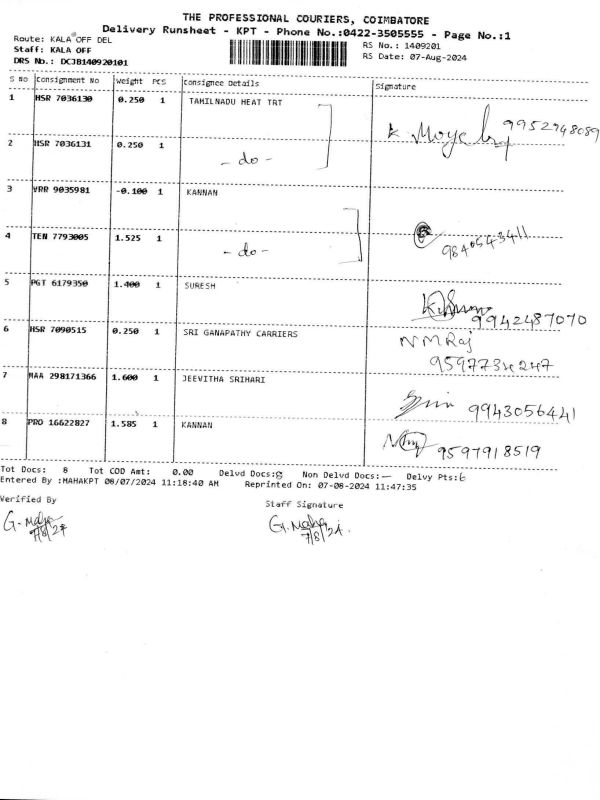 THE PROFESSIONAL COURIERS, COIMBATORE
Delivery Runsheet - KPT - Phone No.:0422-3505555 - Page No.:1
Route: KALA OFF DEL
RS No.: 1409201
Staff: KALA OFF
RS Date: 07-Aug-2024
DRS No.: DCJB140920101
S No Consignment No Weight PCS Consignee Details Signature
1 HSR 7036130 0.250 1 TAMILNADU HEAT TRT
9952948089
2 HSR 7036131 0.250 1
- do -
3 VRR 9035981 -0.100 1 KANNAN
4 TEN 7793005 1.525 1
- do - 9840543411
5 PGT 6179350 1.400 1 SURESH
9942487070
6 HSR 7090515 0.250 1 SRI GANAPATHY CARRIERS NMRaj
9597734247
7 MAA 298171366 1.600 1 JEEVITHA SRIHARI
9943056441
8 PRO 16622827 1.585 1 KANNAN
9597918519
Tot Docs: 8 Tot COD Amt: 0.00 Delvd Docs:8 Non Delvd Docs:— Delvy Pts:6
Entered By :MAHAKPT 08/07/2024 11:18:40 AM Reprinted On: 07-08-2024 11:47:35
Verified By Staff Signature
G. Maha G. Maha
7/8/24 7/8/24.